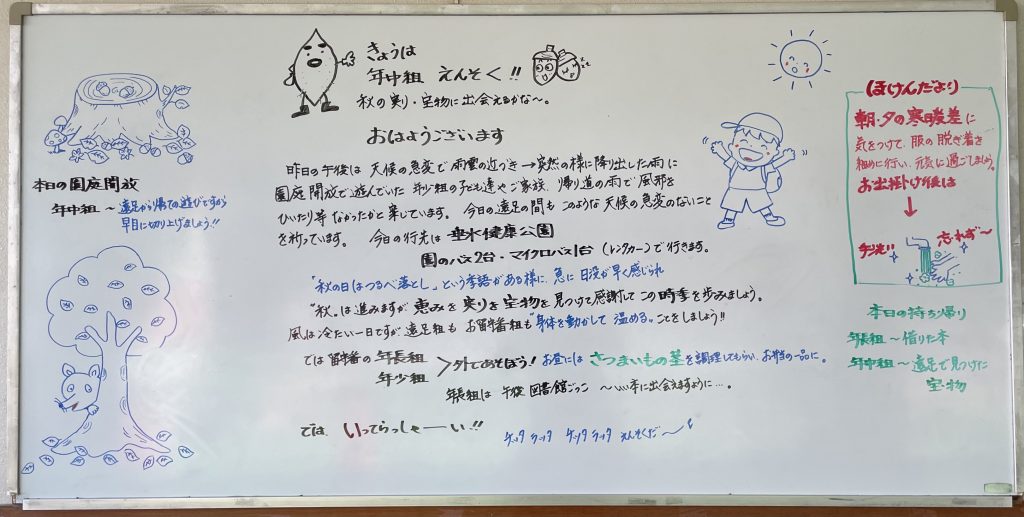 きょうは
年中組 えんそく!!
秋の実り・宝物に出会えるかな〜。
おはようございます
昨日の午後は 天候の急変で 雨雲の近づき→突然の様に降り出した雨に
園庭開放で遊んでいた 年少組の子ども達やご家族、帰り道の雨で風邪を
ひいたり等 なかったかと案じています。 今日の遠足の間も このような天候の急変のないこと
を祈っています。 今日の行先は 垂水健康公園
園のバス2台・マイクロバス1台(レンタカー)で行きます。
"秋の日はつるべ落とし"という季語がある様に 急に 日没が早く感じられ
"秋"は進みますが 恵みを実りを宝物を見つけて感謝して この時季を歩みましょう。
風は冷たい一日ですが 遠足組も お留守番組も "身体を動かして 温める"ことをしましょう!!
では 留守番の 年長組
年少組
>外であそぼう! お昼には さつまいもの茎を調理してもらい、お弁当の一品に。
年長組は 午後 図書館ごっこ 〜いい本に出会えますように…。
では、いってらっしゃーい!!
ケッタ ケッタ えんそくだ〜
本日の園庭開放
年中組〜遠足から帰っての遊びですから
早目に切り上げましょう!!
(ほけんだより)
朝・夕の寒暖差に
気をつけて、服の脱ぎ着を
細めに行い、元気に過ごしましょう。
お出掛け後は
↓
手洗い!!
忘れず〜
本日の持ち帰り
年長組〜借りた本
年中組〜遠足で見つけた
宝物